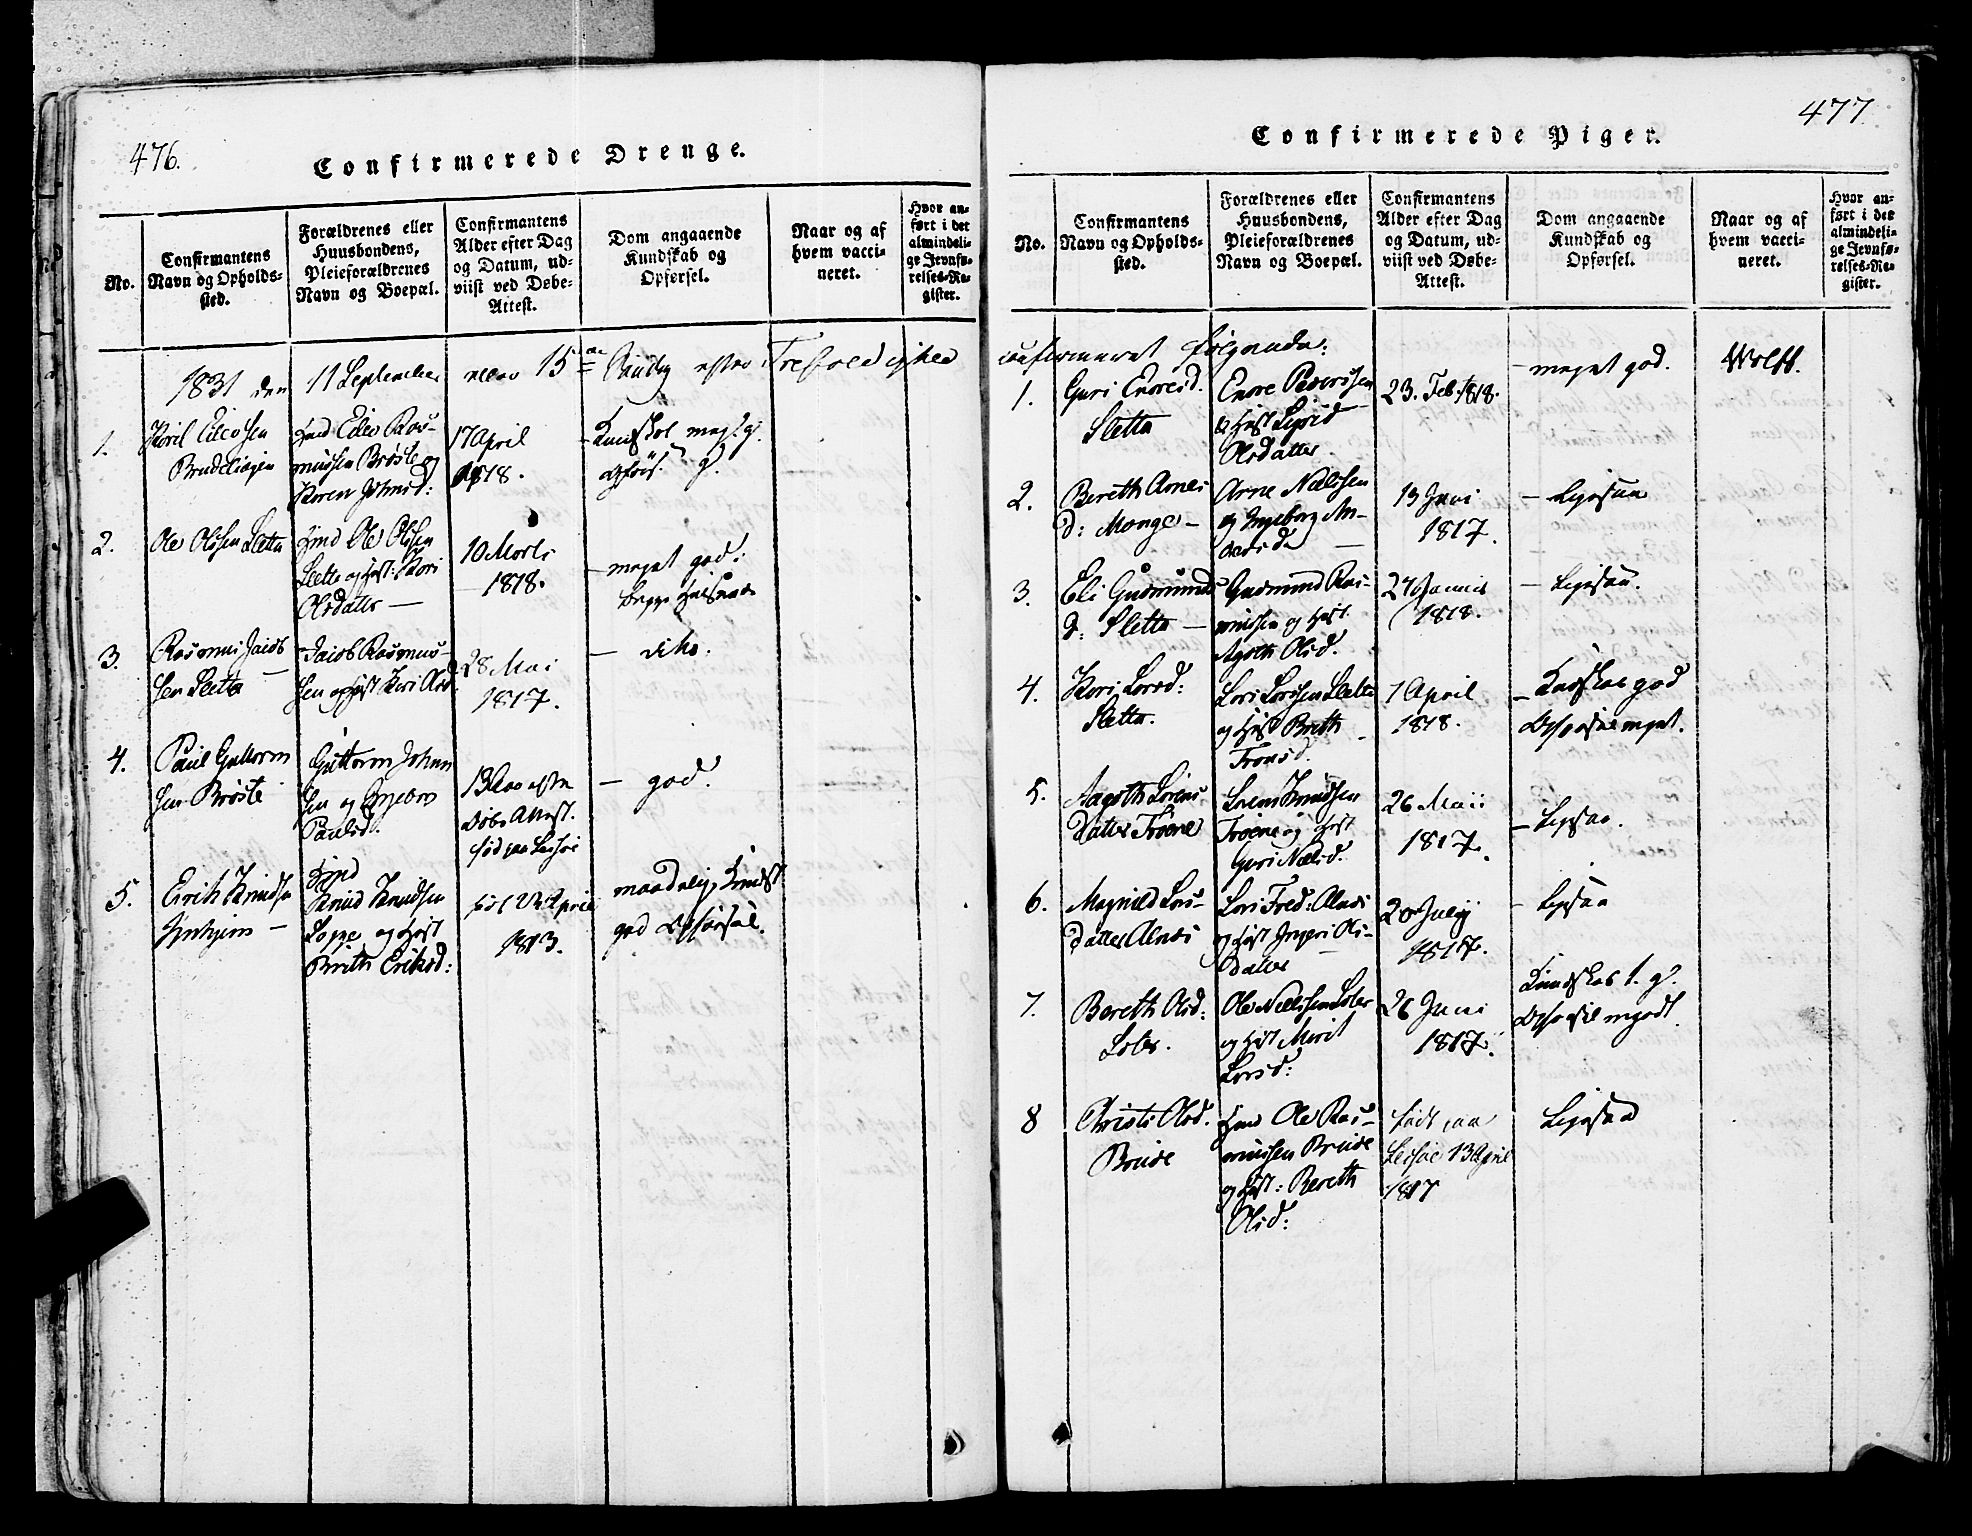 476.
Confirmerede Drenge.
No.
Confirmantens
Navn og Opholds-
sted.
Forældrenes eller
Huusbondens,
Pleieforældrenes
Navn og Boepæl.
Confirmantens
Alder efter Dag
og Datum, ud-
viist ved Døbe-
Attest.
Dom angaaende
Kundskab og
Opførsel.
Naar og af
hvem vacci-
neret.
Hvor an-
ført i det
almindeli-
ge Jevnfø-
relses-Re-
gister.
1831 den 11 September eller 15de Søndag efter Trefoldighed
1.
Kiril Eilevsen
Brudeliøgen
Huusbd Eilev Ras-
mussen Brøste og
Karen Johnsd:
17 April
1818.
Kundskab meg: g:
opførs. g.
2.
Ole Olssen Sletta
Ole Olssen
Sletta og Hust: Kari
Olsdatter —
10 Marts
1818.
— meget god:
begge
3.
Rasmus Jacob
sen Sletta —
Jacob Rasmus-
sen og Hust Kari Olsd:
28 Mai
1817.
— dito.
4.
Paul Guttorm
sen Brøste
Guttorm Johan
sen og Ingebor
Paulsd.
13 efter
Døbe Attest.
fød paa Lessøe
— god.
5.
Erich Knudsen
—
Knud Knudsen
Loppe og Hust
Brith Eriksd:
født 22 April
1813.
maadelig Kundsk
god Opførsel.
477
Confirmerede Piger.
No.
Confirmantens
Navn og Opholds-
sted.
Forældrenes eller
Huusbondens,
Pleieforældrenes
Navn og Boepæl.
Confirmantens
Alder efter Dag
og Datum, ud-
viist ved Døbe-
Attest.
Dom angaaende
Kundskab og
Opførsel.
Naar og af
hvem vacci-
neret.
Hvor an-
ført i det
almindeli-
ge Jevnfø-
relses-Re-
gister.
confirmeret følgende:
1.
Guri Enoresd
Sletta
Enore Pedersen
& Hust Sigrid
Olsdatter
23. Feb. 1818.
— meget god.
Wolff.
2.
Bereth Arnes
d: Monge —
Arne Nielssen
og Ingeborg An-
dersd —
13 Juni
1817.
— Ligesaa
3.
Eli Gudmunds
d: Sletta —
Gudmund Ras-
mussen og Hust
Agoth Olsd.
27 Januar
1818.
— Ligesaa.
4.
Kari Larsd:
Sletta.
Lars Larssen Sletta
og Hust Brith
Tronsd.
7 April
1818.
— Kundskab god
Opførsel meget.
5.
Aagoth Lorens
Datter Troene
Lorens Knudssen
Troene og Hust
Guri Nielsd.
26 Maii
1817.
— Ligesaa.
6.
Magnild Lars-
Datter Alnæs
Lars Fred: Alnæs
og Hust Ingeri Ols-
Datter
20 Julij
1817.
— Ligesaa
7.
Bereth Olsd:
Ole Nielssen
og Hust Marit
Larsd:
26 Juni
1817.
Kundskab t. g.
Opførsel m godt.
8
Christi Olsd.
Brude
Ole Ras-
mussen Brude
og Hust: Bereth
Olsd:
født paa
Lessøe 13 April
1817
Ligesaa